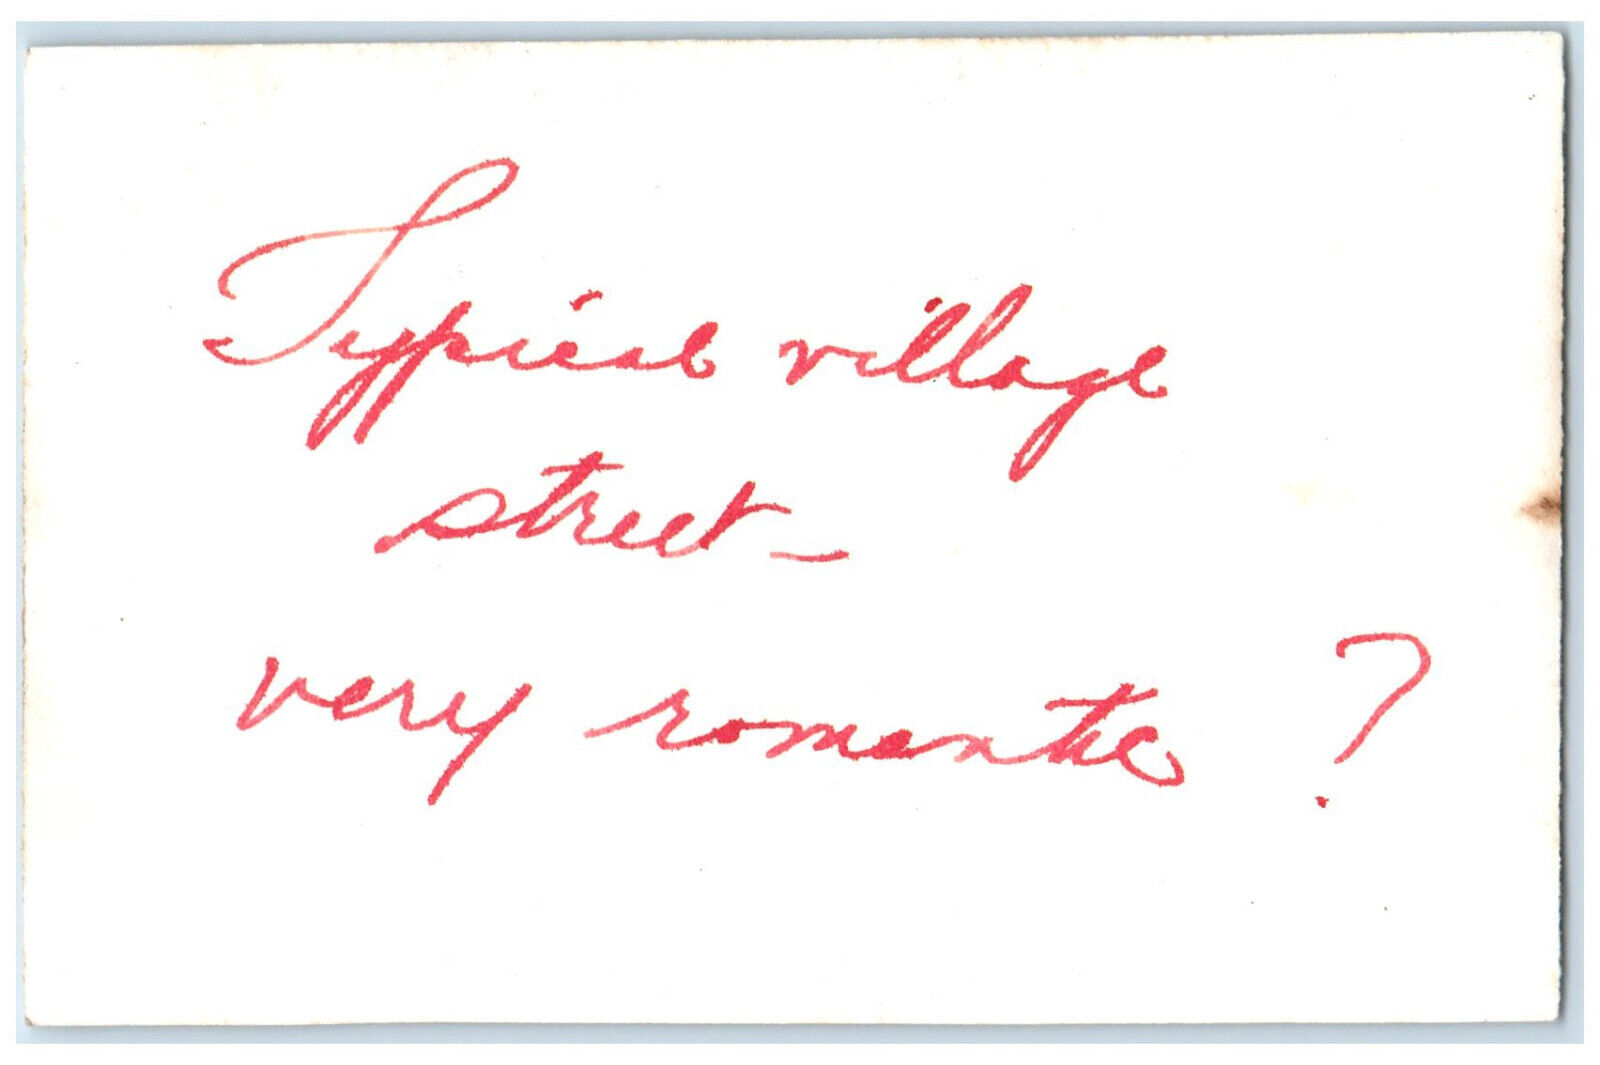 Typical village
street -
very romantic ?